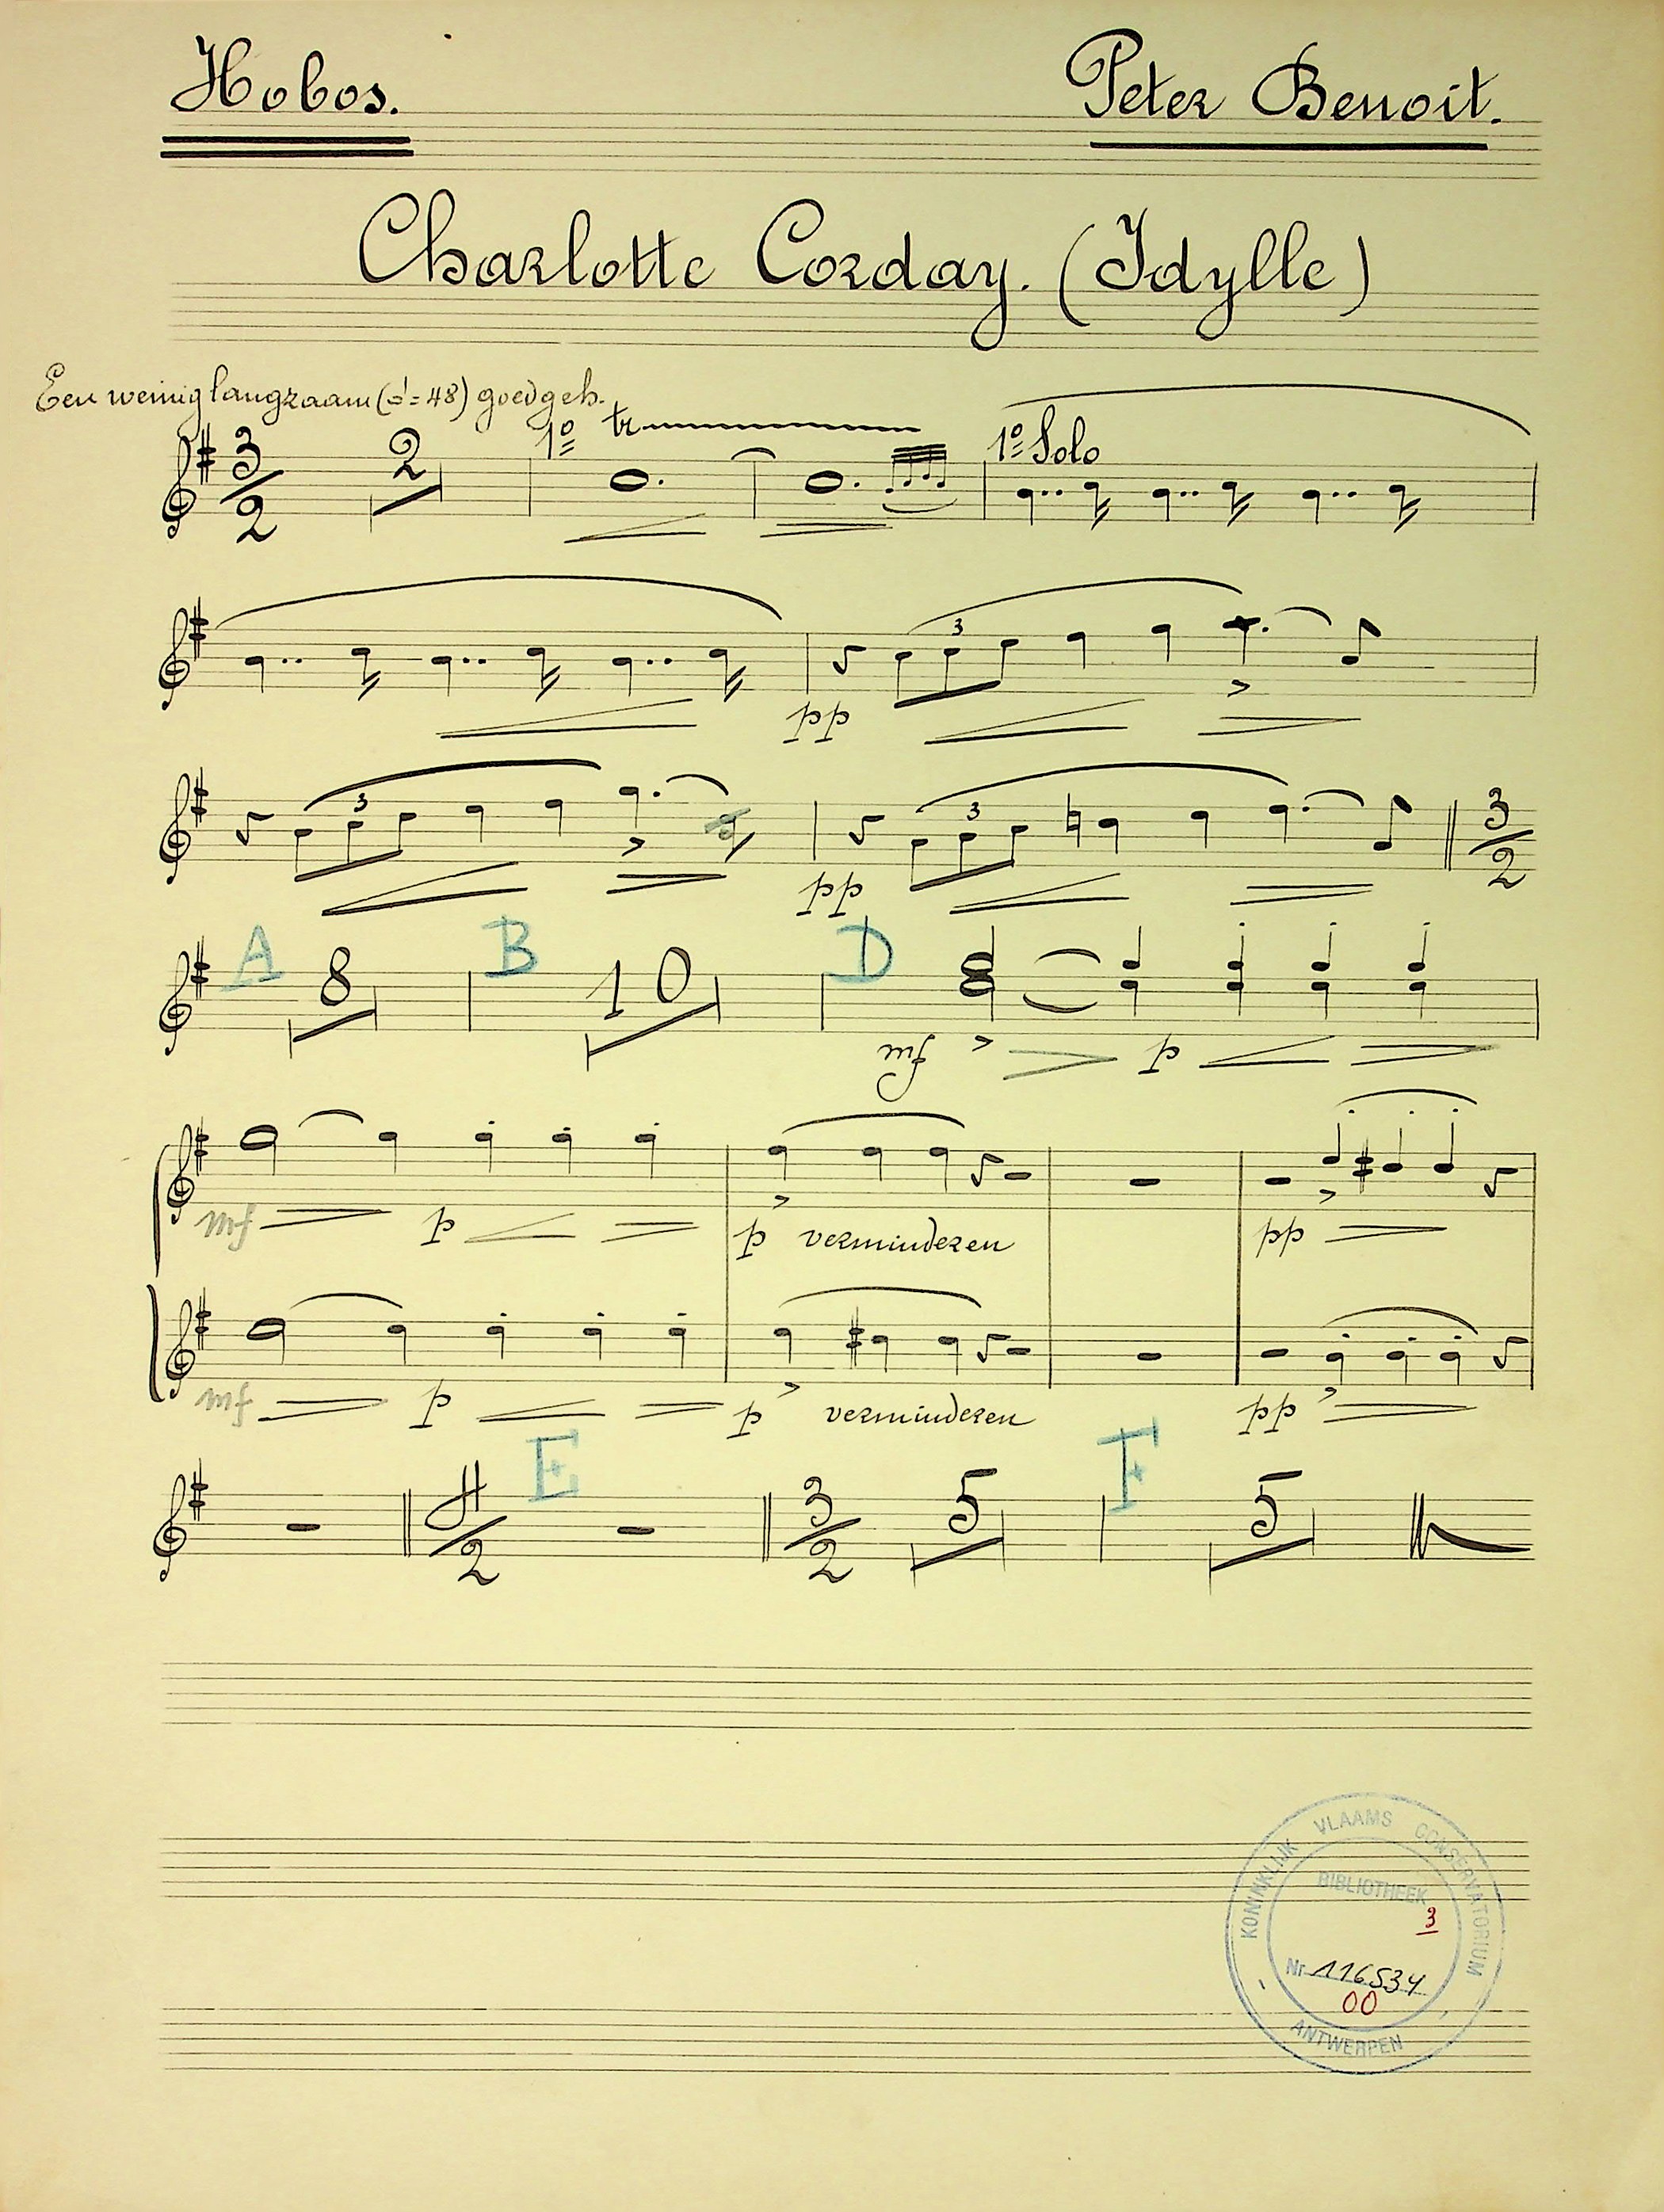 Hobos.
Peter Benoit.
Charlotte Corday. (Idylle)
Een weinig langzaam (𝅗𝅥 = 48) goed geh.
3/2 2 1º tr 1º Solo
3
pp
3 3 3/2
pp
A 8 B 10 D
mf > p
mf p p verminderen pp
mf p p verminderen pp
4/2 E 3/2 5 F 5
KONINKLIJK VLAAMS CONSERVATORIUM
BIBLIOTHEEK
3
Nr 116534
00
ANTWERPEN